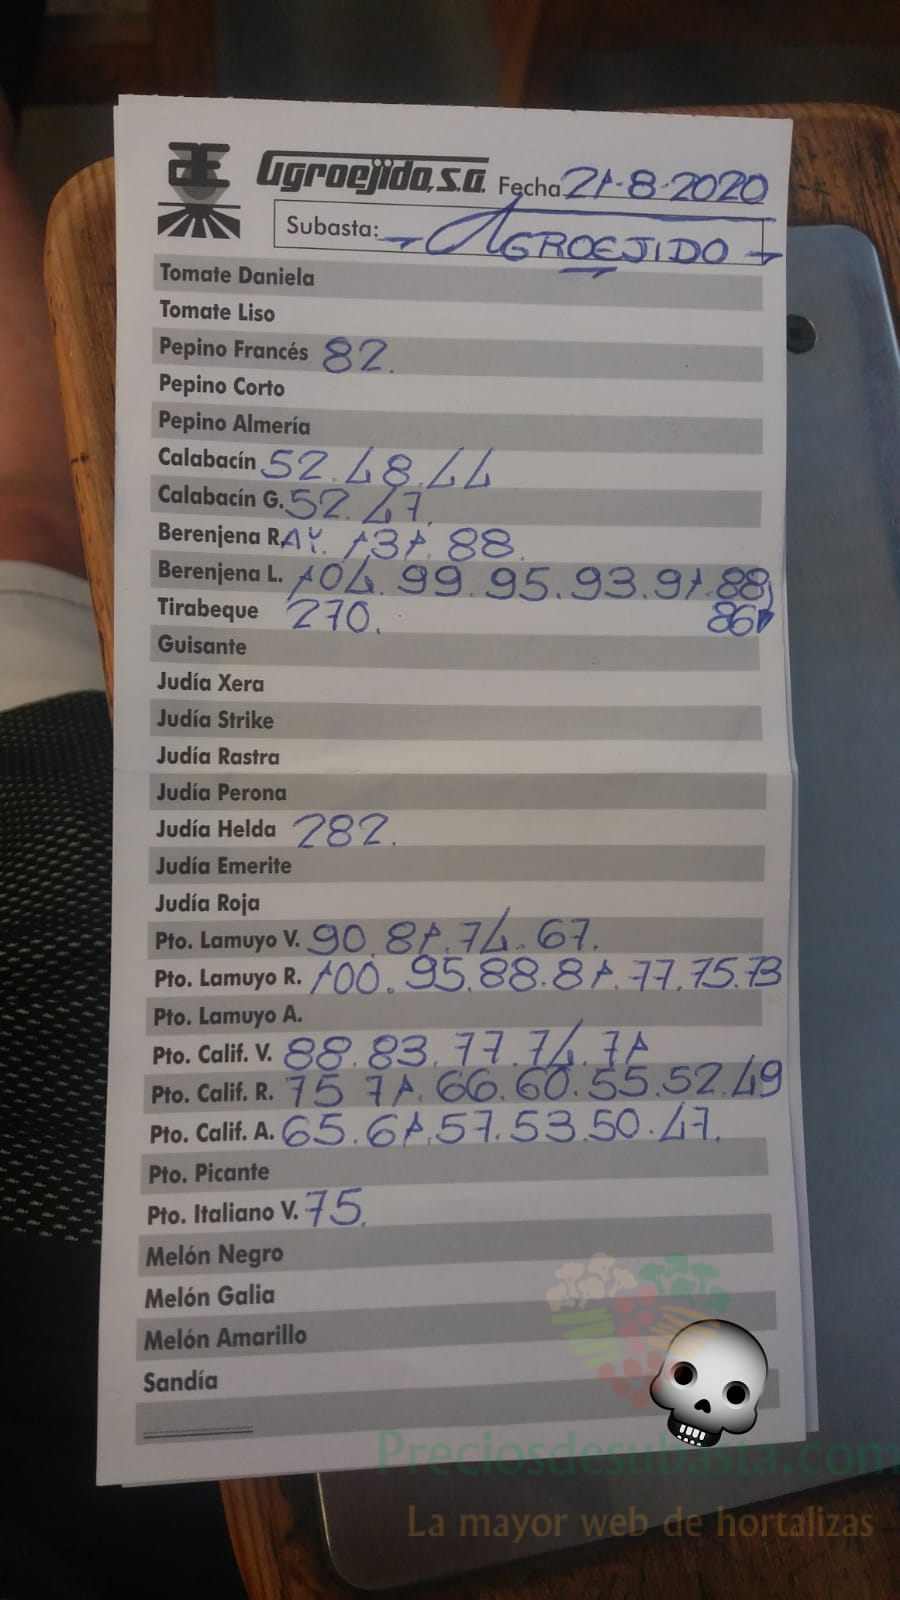 Agroejido, S.A. Fecha 21-8-2020
Subasta: → AGROEJIDO →
Tomate Daniela
Tomate Liso
Pepino Francés 82.
Pepino Corto
Pepino Almería
Calabacín 52.48.44
Calabacín G. 52.47.
Berenjena R. AY. 131. 88.
Berenjena L. 104. 99. 95. 93. 91. 88
Tirabeque 270. 86
Guisante
Judía Xera
Judía Strike
Judía Rastra
Judía Perona
Judía Helda 282.
Judía Emerite
Judía Roja
Pto. Lamuyo V. 90. 81. 74. 67.
Pto. Lamuyo R. 100. 95. 88. 81. 77. 75. 73
Pto. Lamuyo A.
Pto. Calif. V. 88. 83. 77. 74. 71
Pto. Calif. R. 75 71. 66. 60. 55. 52. 49
Pto. Calif. A. 65. 61. 57. 53. 50. 47.
Pto. Picante
Pto. Italiano V. 75.
Melón Negro
Melón Galia
Melón Amarillo
Sandía
Preciosdesubasta.com
La mayor web de hortalizas